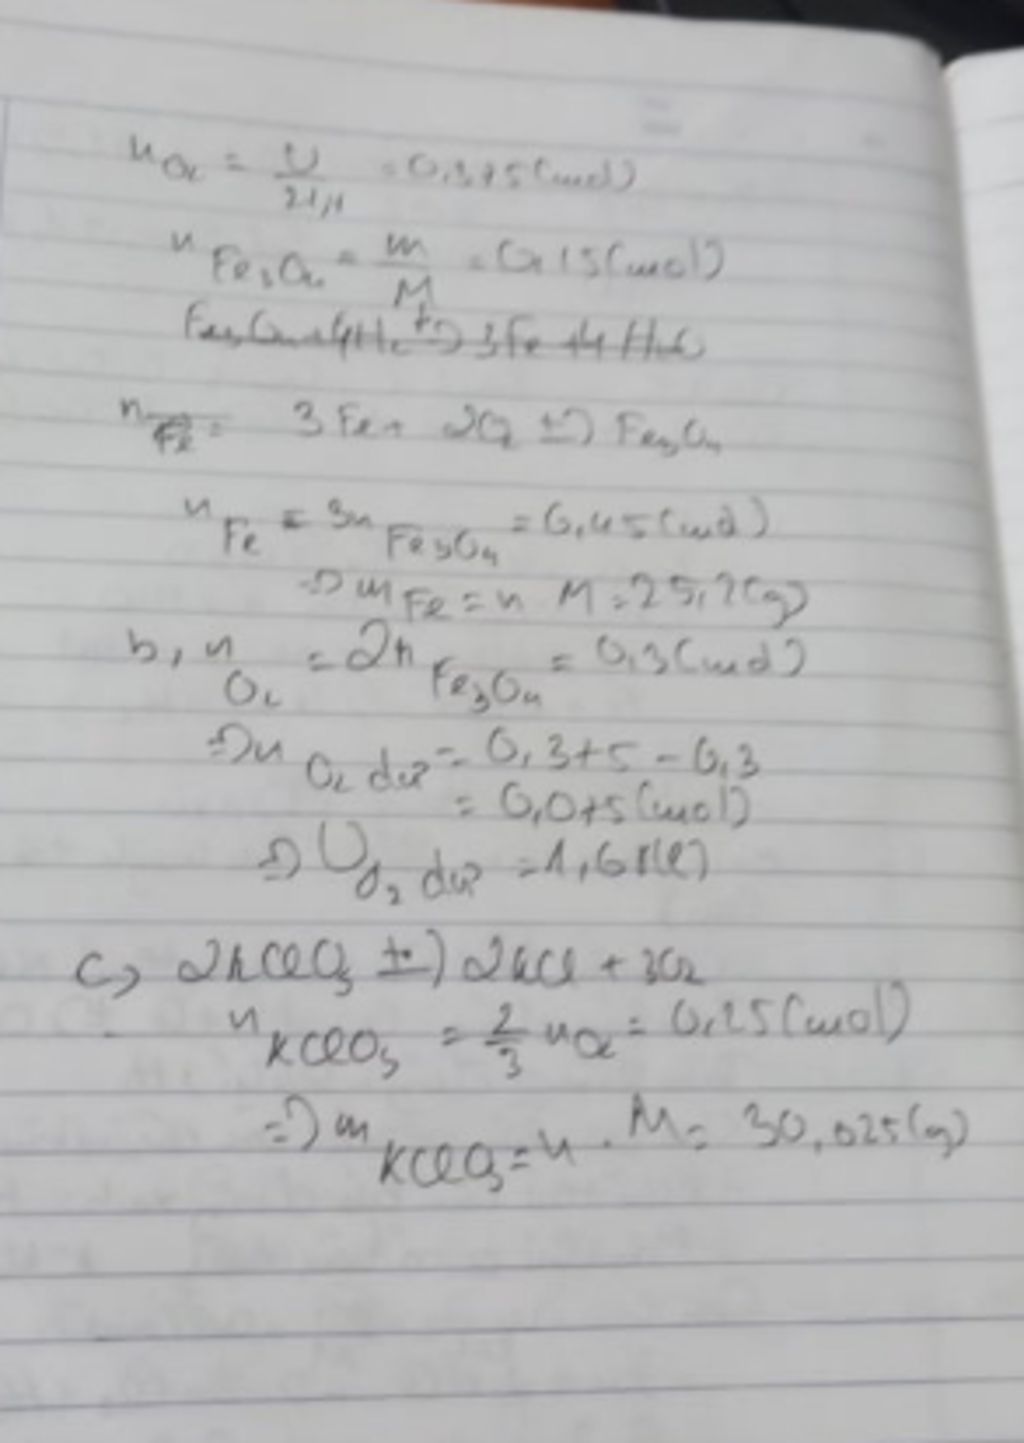 n O₂ = V/22,4 = 0,375 (mol)
n Fe₃O₄ = m/M = 0,15 (mol)
Fe₃O₄ + 4H₂ t°→ 3Fe + 4H₂O
n Fe = 3Fe + 2O₂ t°→ Fe₃O₄
n Fe = 3n Fe₃O₄ = 0,45 (mol)
=> m Fe = n M = 25,2 (g)
b, n O₂ = 2n Fe₃O₄ = 0,3 (mol)
=> n O₂ dư = 0,375 - 0,3
= 0,075 (mol)
=> V O₂ dư = 1,68 (l)
c, 2KClO₃ t°→ 2KCl + 3O₂
n KClO₃ = 2/3 n O₂ = 0,25 (mol)
=> m KClO₃ = n . M = 30,625 (g)